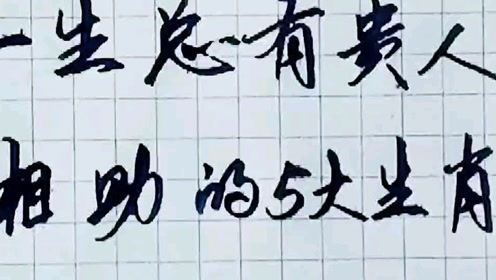 一生总有贵人
相助的5大生肖